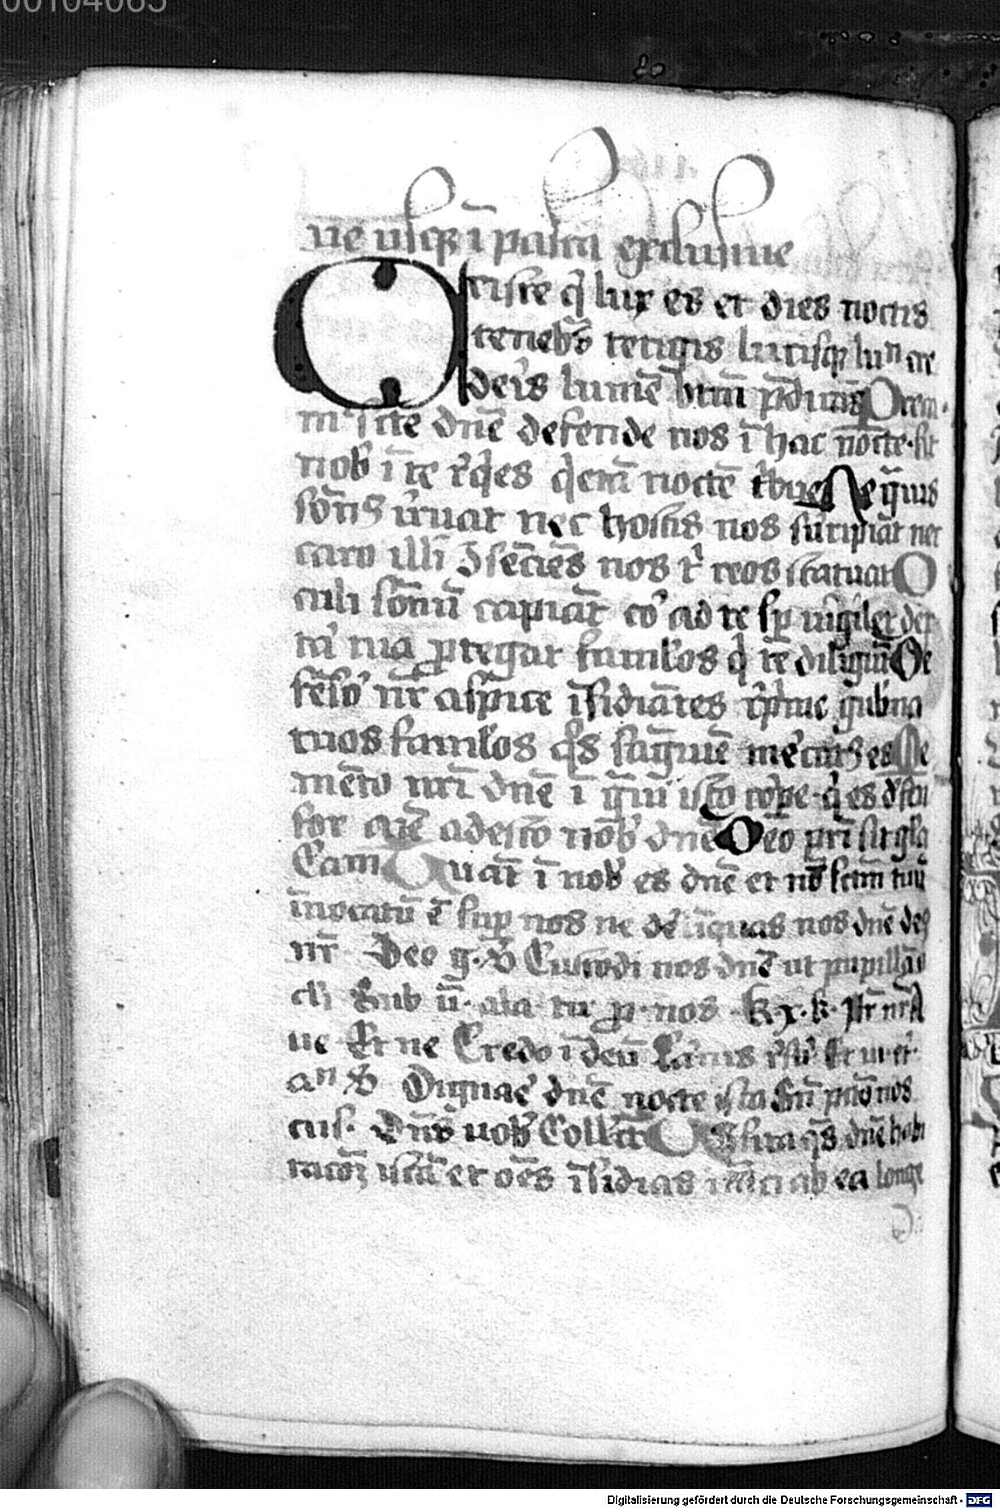 00104065
ue usq; ī pasca exclusiue
Criste q̄ lux es et dies noctis
tenebrͣs tetigis lucisq; lumē cre
deris lumē btm̄ p̄dicās Prem
m̄ scte dn̄e defende nos ī hac nocte sit
nob ī te r̄q̄es q̄etā noctē tͥbue Ne g̃uis
sōn9 irruat nec hostis nos surripiat nec
caro illi ɔsēciēs nos tͥ reos statuat O
culi sōnū capiāt cor ad te sp̄ uigilet dex
tͣa tua ꝓtegat famulos q̄ te diligūt De
fēsor nr̄ aspice īsidiātes rep̄me gub̄na
tuos famulos q̄s sāguīe mercat9 es Me
mēto nri dn̄e ī g̃ui isto corpe q̄ es defen
sor aīe adesto nob dn̄e Deo pri sit gl̄a
Eam Tu aūt ī nob es dn̄e et nom̄ sc̄m tuū
īuocatū ē sup nos ne derelīquas nos dn̄e deus
nr̄ Deo g. V Custodi nos dn̄e ut pupillā
cli Sub ū. ala tuar̄ p. nos k x. k. Pr̄ nr̄ A
ue Et ne Credo ī deū Carnis r̄sur Et uitā
an V Dignare dn̄e nocte ista sine pctō nos
cus. Dn̄s uob Collecta Uisita q̄s dn̄e habi
tacōꝫ istā et oēs īsidias inīici ab ea longe
Digitalisierung gefördert durch die Deutsche Forschungsgemeinschaft - DFG